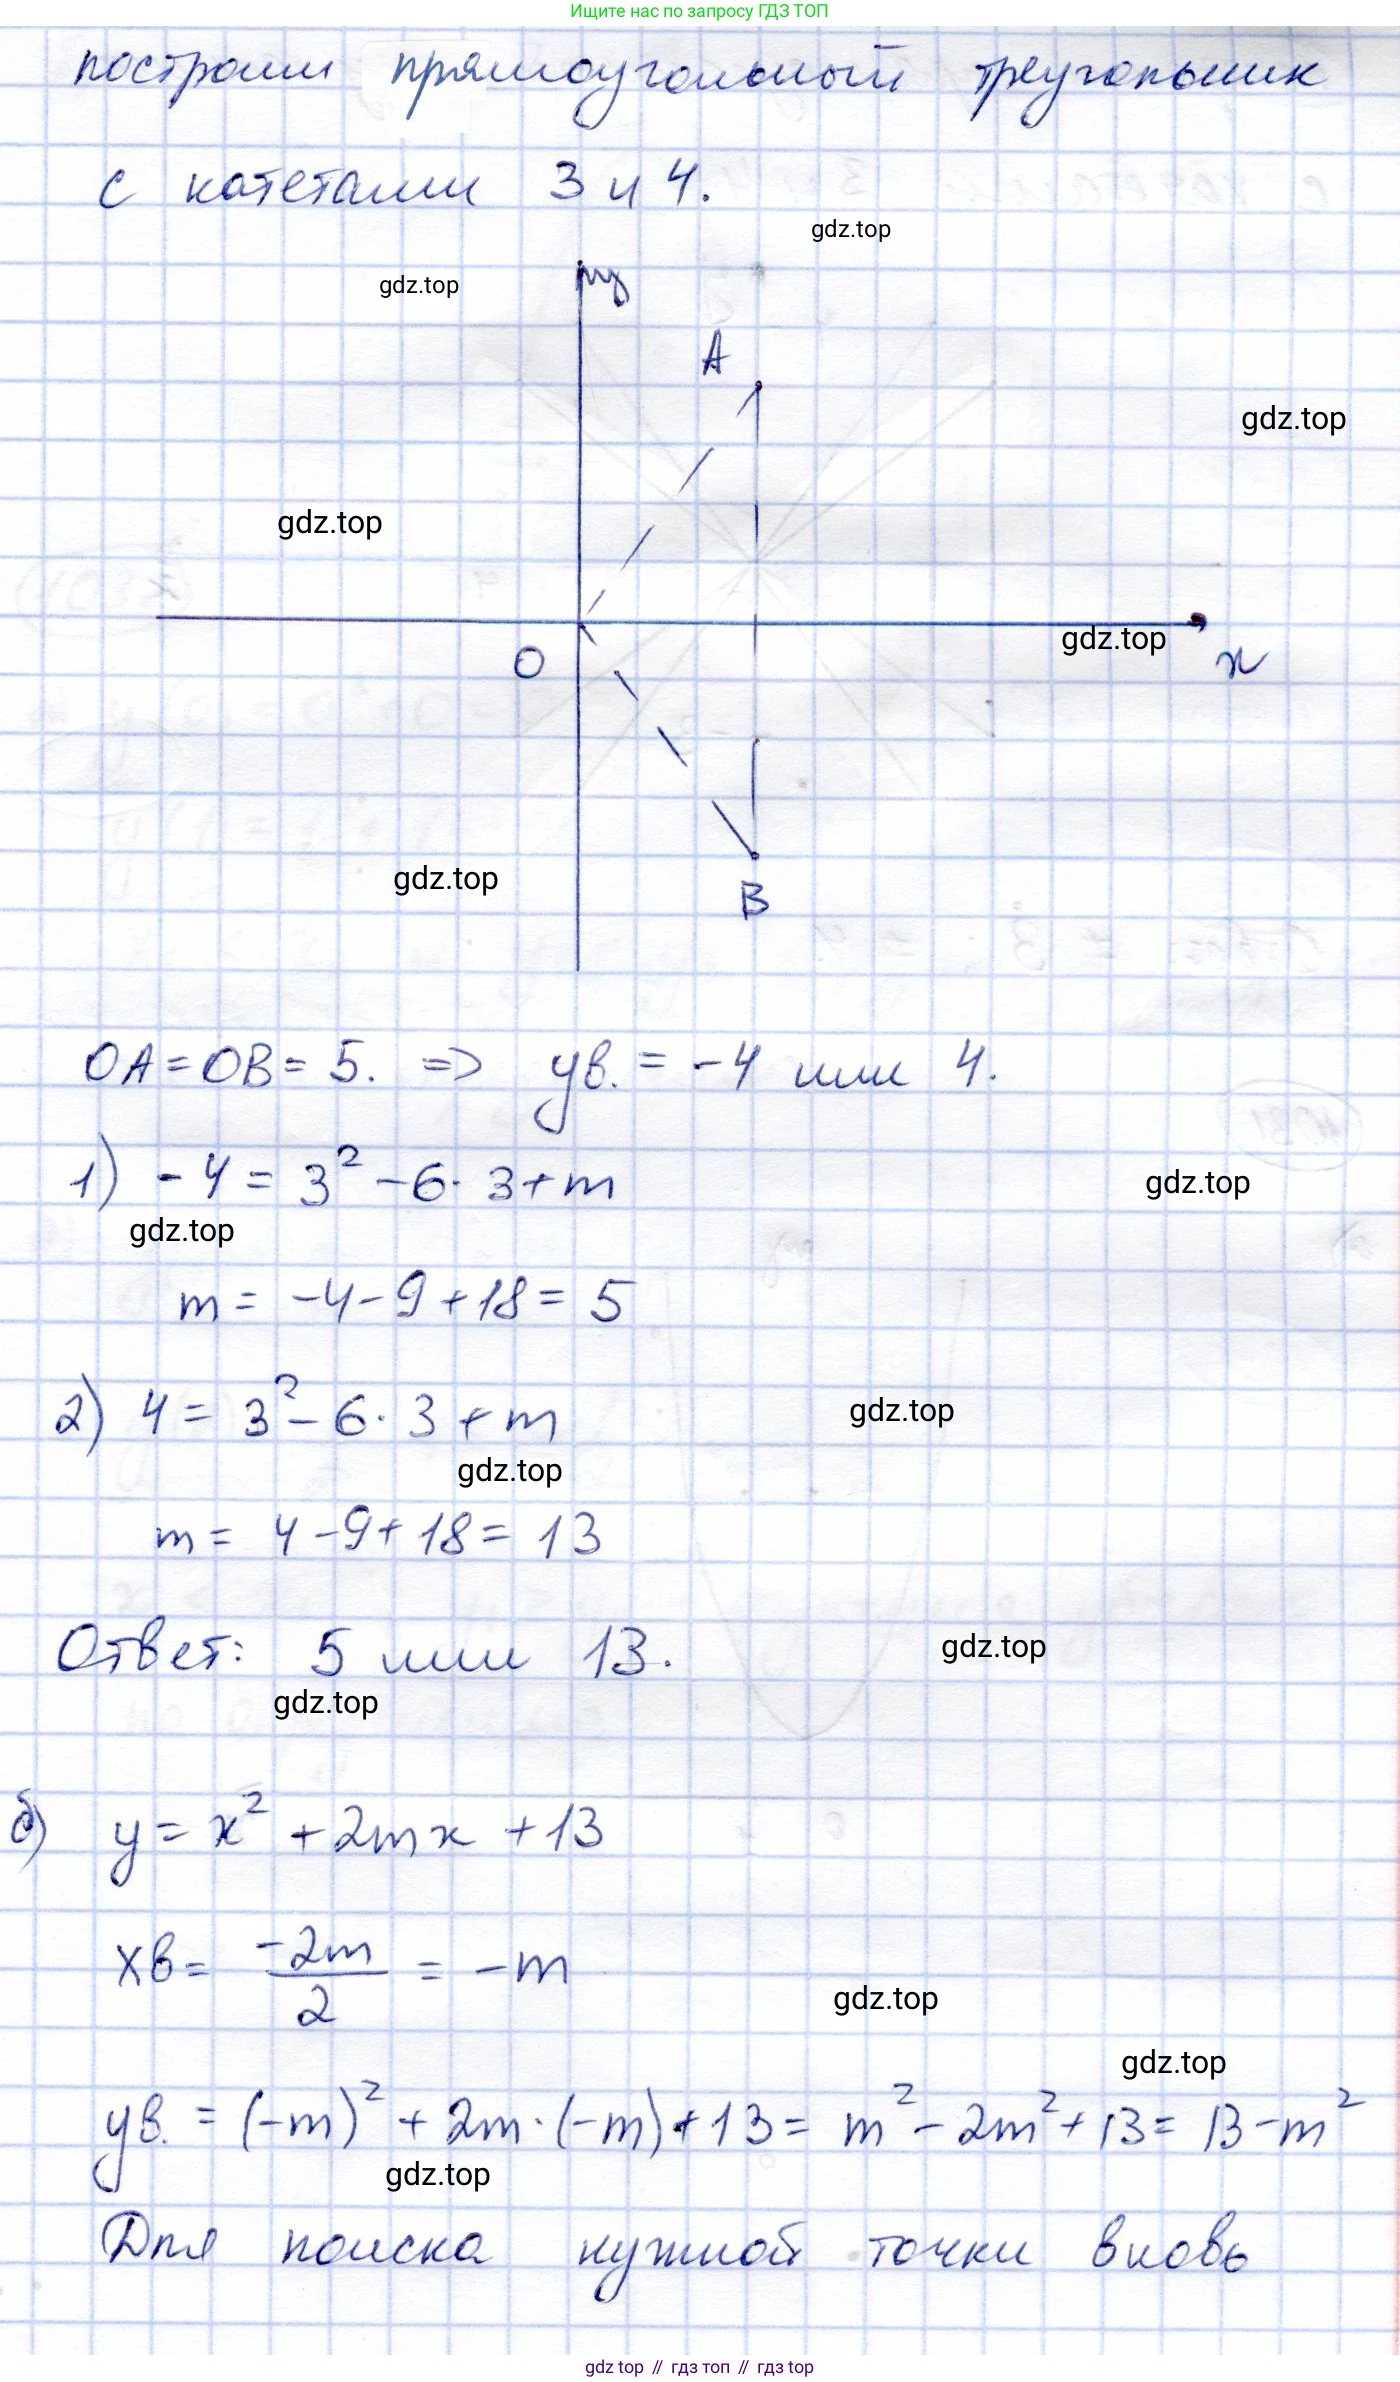 Ищите нас по запросу ГДЗ ТОП
построим прямоугольный треугольник
с катетами 3 и 4.
gdz.top
gdz.top
y
A
gdz.top
gdz.top
gdz.top
O
x
gdz.top
B
OA = OB = 5. => yв. = -4 или 4.
1) -4 = 3² - 6· 3 + m
gdz.top
gdz.top
m = -4 - 9 + 18 = 5
2) 4 = 3² - 6· 3 + m
gdz.top
gdz.top
m = 4 - 9 + 18 = 13
Ответ: 5 или 13.
gdz.top
gdz.top
б) y = x² + 2mx + 13
xв = -2m/2 = -m
gdz.top
gdz.top
yв. = (-m)² + 2m·(-m) + 13 = m² - 2m² + 13 = 13 - m²
gdz.top
Для поиска нужной точки вновь
gdz top // гдз топ // gdz top